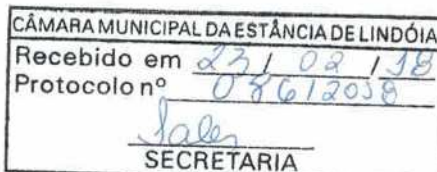 CÂMARA MUNICIPAL DA ESTÂNCIA DE LINDÓIA
Recebido em 23 / 02 / 18
Protocolo nº 086/2018
Sales
SECRETARIA